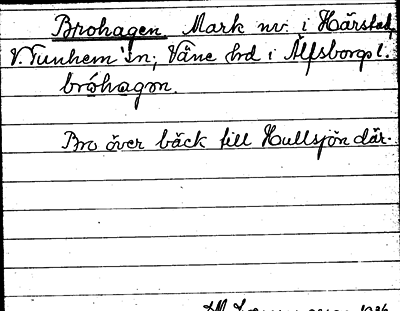 Brohagen Mark nv. i Härstad,
V. Tunhem Sn, Väne hd i Älfsborgs l.
bróhagən.
Bro över bäck till Hullsjön där.